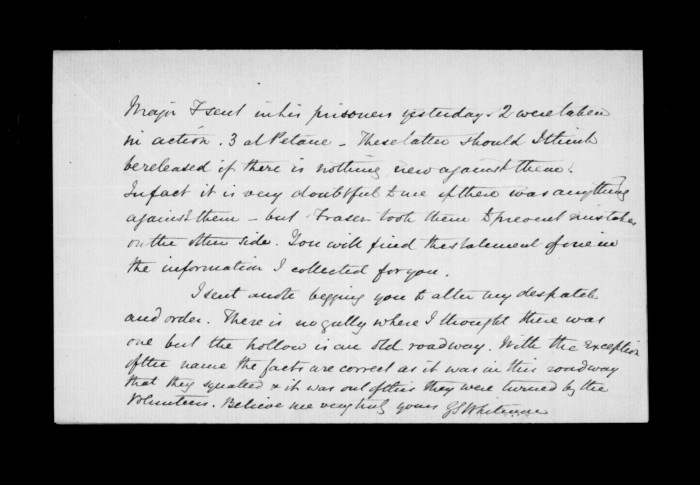 Major F sent in his prisoners yesterday. 2 were taken
in action. 3 at Petane - These latter should I think
be released if there is nothing new against them.
In fact it is very doubtful to me if there was anything
against them - but Fraser took them to prevent mistakes
on the other side. You will find the statement of one in
the information I collected for you.
I sent a note begging you to alter my despatch
and order. There is no gully where I thought there was
one but the hollow is an old roadway. With the exception
of the name the facts are correct as it was in this roadway
that they squatted & it was out of this they were turned by the
Volunteers. Believe me very truly yours G S Whitmore